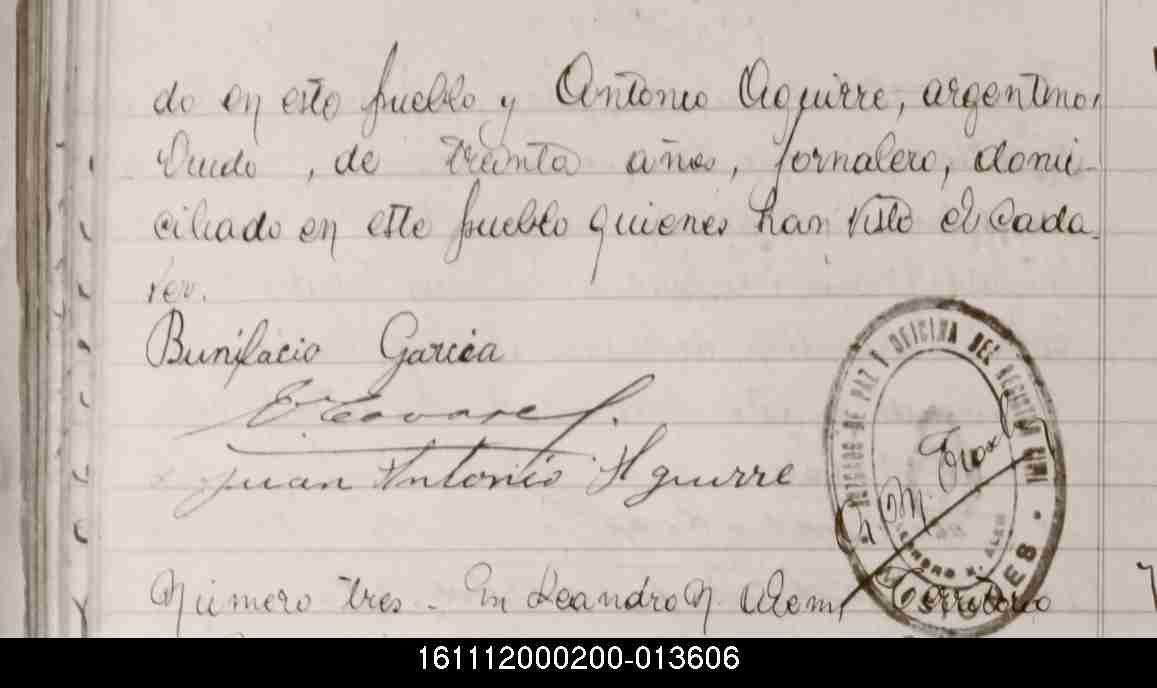 do en este pueblo y Antonio Aguirre, argentino,
viudo, de treinta años, jornalero, domi-
ciliado en este pueblo quienes han visto el cada-
ver.
Bunifacio Garcia
Juan Antonio Aguirre
JUZGADO DE PAZ Y OFICINA DEL REGISTRO CIVIL
LEANDRO N. ALEM
Número tres. En Leandro N. Alem, Territorio
161112000200-013606